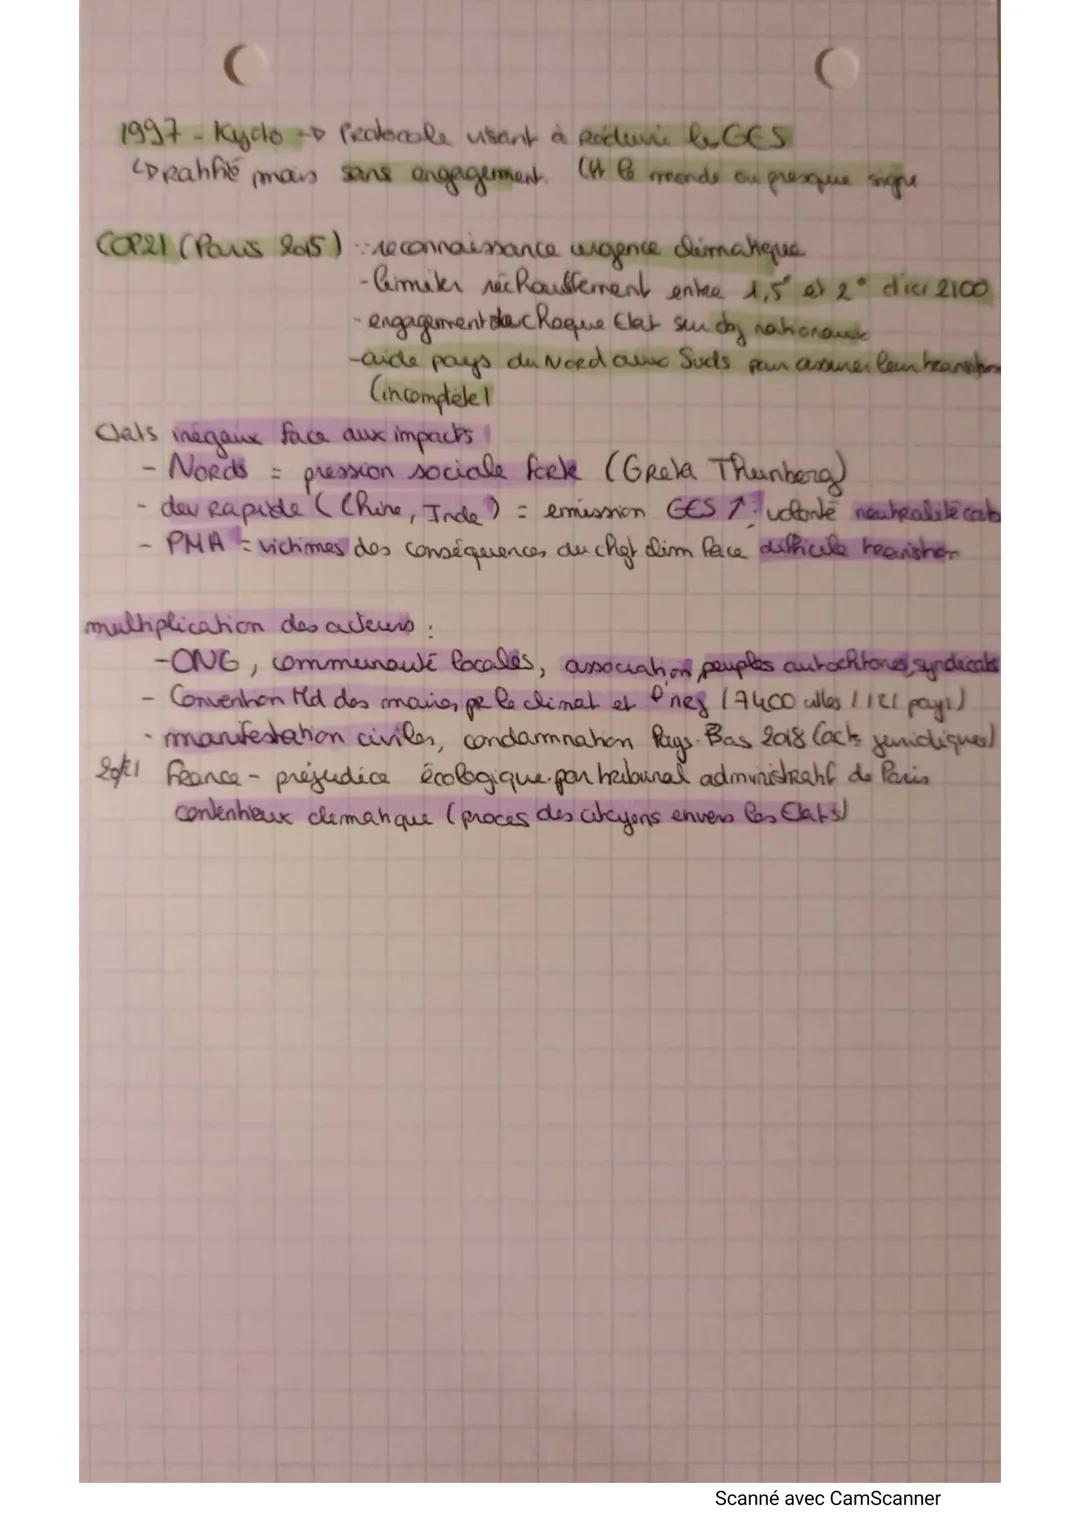 1997 - Kyoto → Protocole visant à réduire les GES
↳ ratifié mais sans engagement. (tt le monde ou presque signe
COP21 (Paris 2015) : - reconnaissance urgence climatique
- limiter réchauffement entre 1,5° et 2° d'ici 2100
- engagement de chaque Etat sur obj nationaux
- aide pays du Nord aux Suds pour assurer leur transition
(incomplète)
Etats inégaux face aux impacts
- Nords = pression sociale forte (Greta Thunberg)
- dev rapide (Chine, Inde) = emission GES ↑ : volonté neutralité carb
- PMA = victimes des conséquences du chgt clim face difficile transition
multiplication des acteurs :
- ONG, communauté locales, association, peuples autochtones, syndicats
- Convention Md des maires pr le climat et l'nrj (7400 villes / 121 pays)
- manifestation civiles, condamnation Pays-Bas 2018 (acts juridiques)
2021 France - préjudice écologique par tribunal administratif de Paris
contentieux climatique (procès des citoyens envers les Etats)
Scanné avec CamScanner